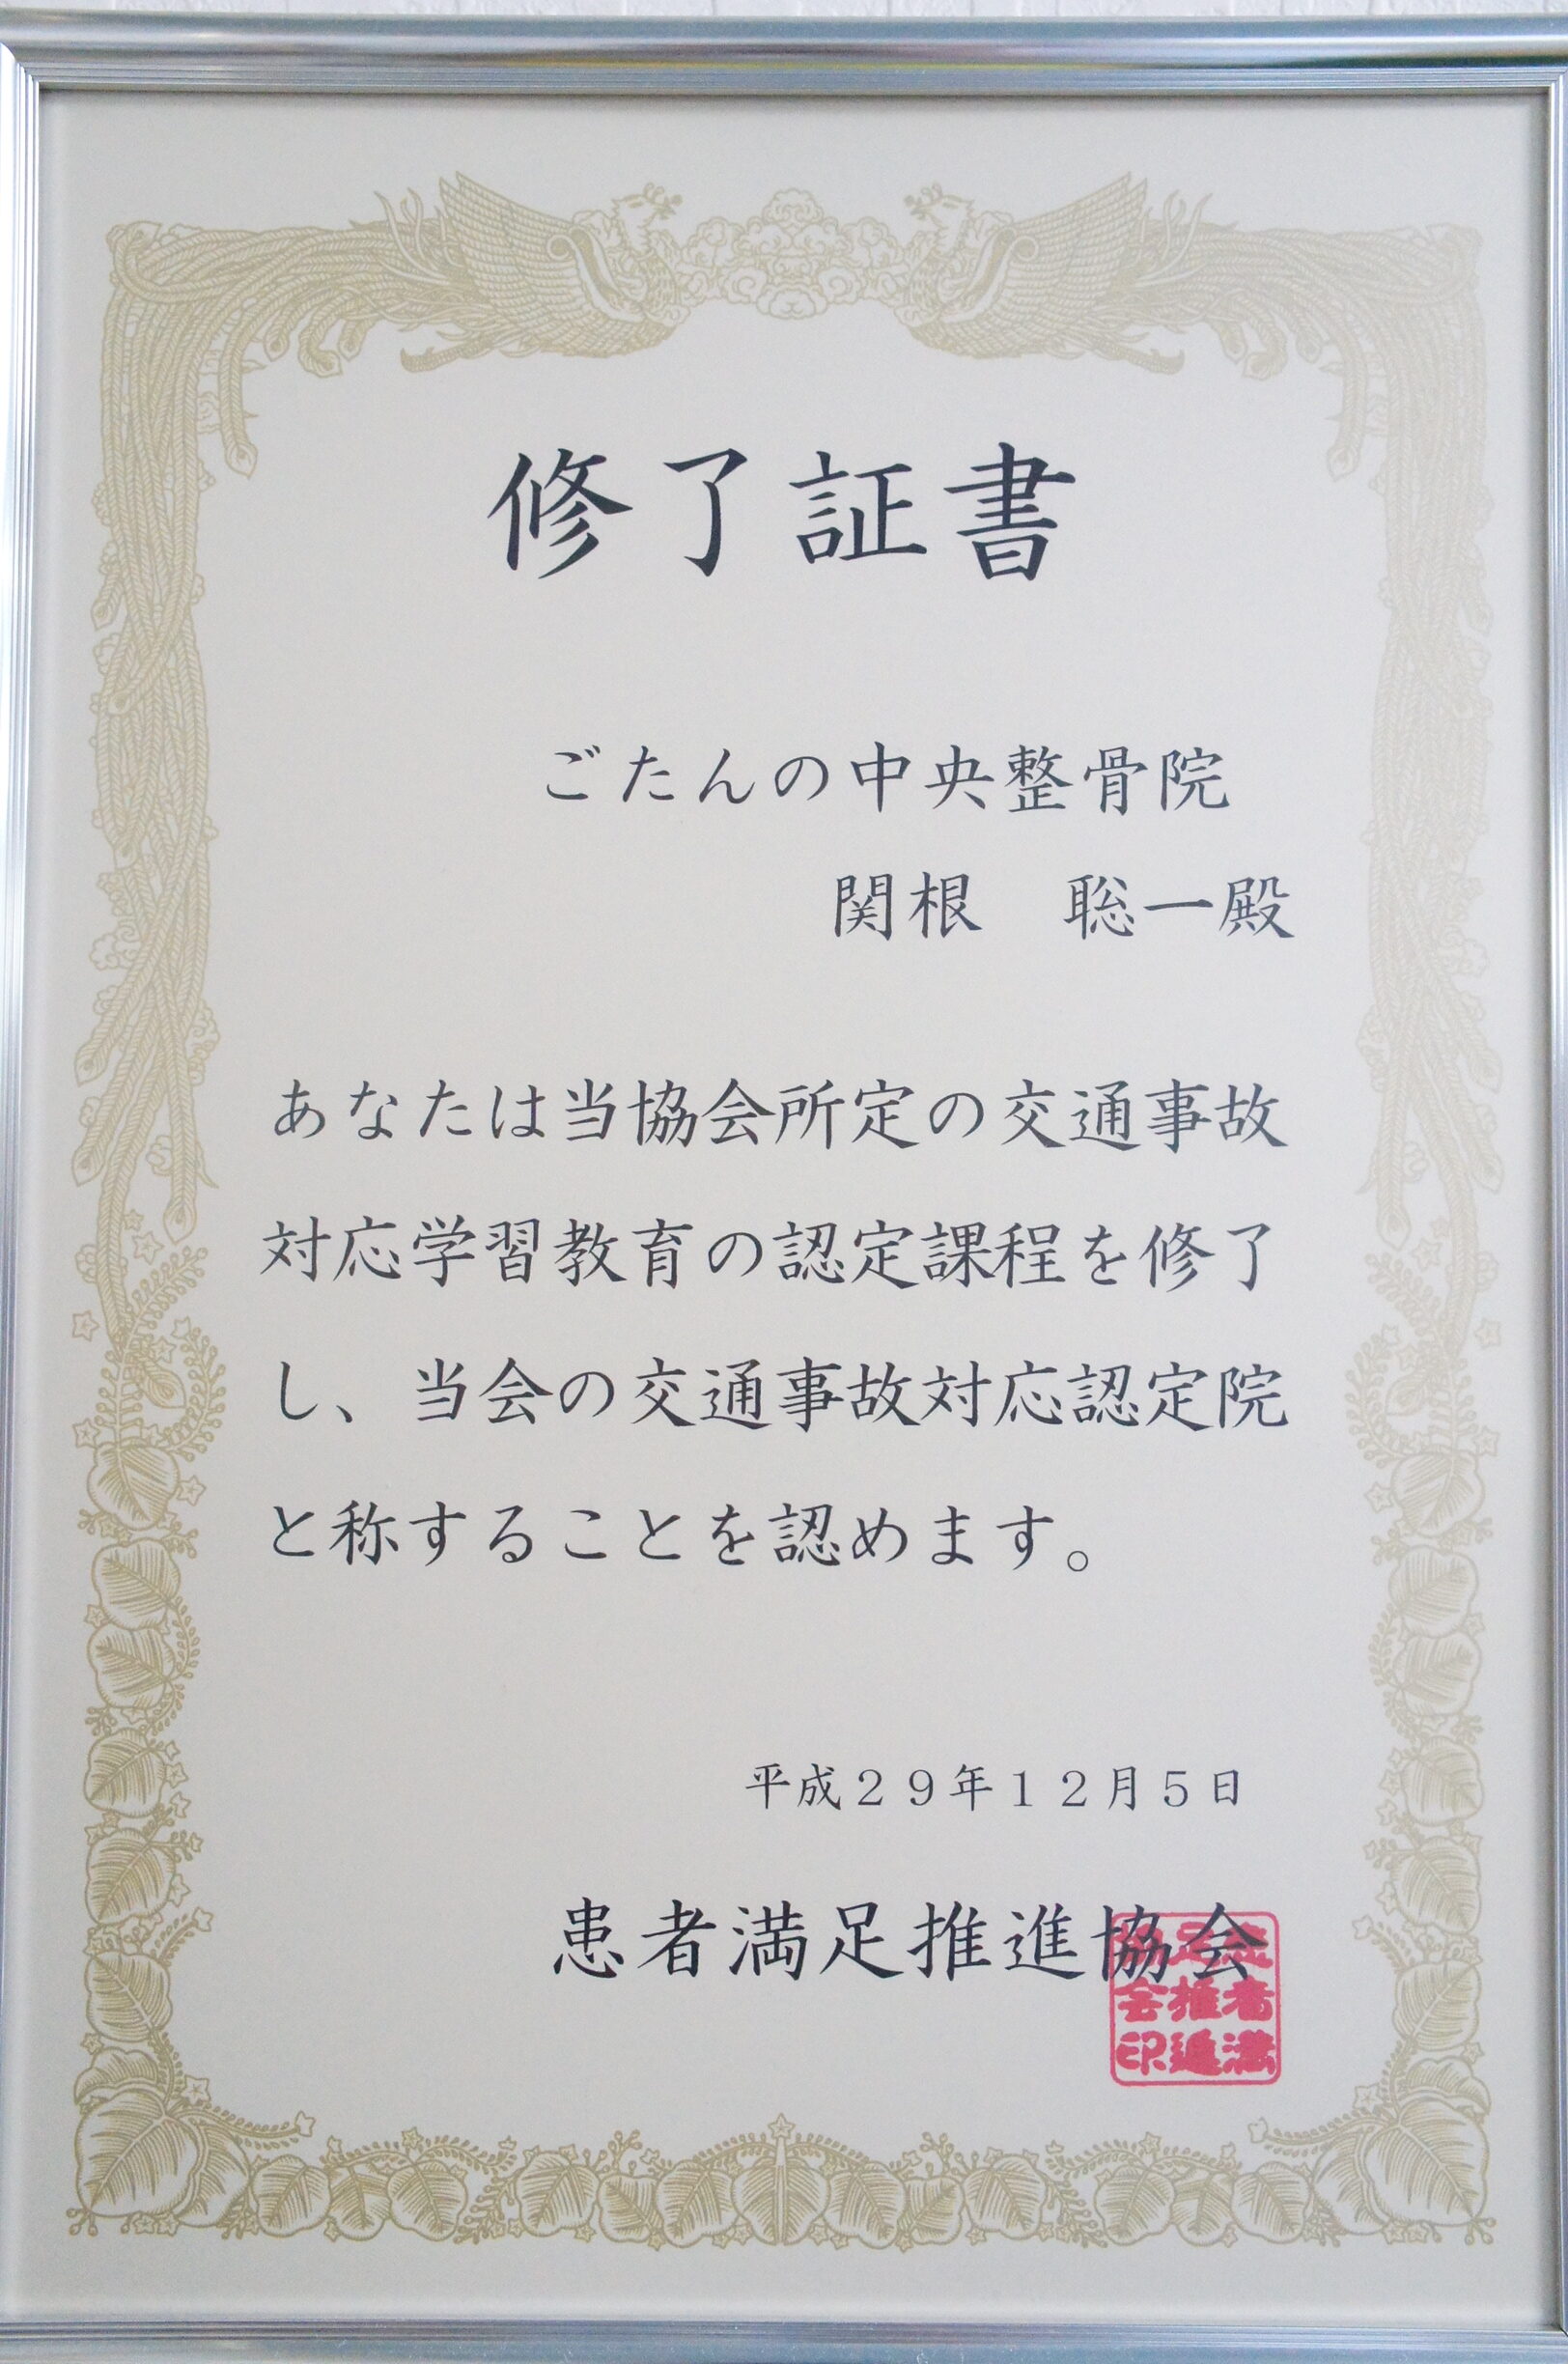 修了証書
ごたんの中央整骨院
関根　聡一殿
あなたは当協会所定の交通事故
対応学習教育の認定課程を修了
し、当会の交通事故対応認定院
と称することを認めます。
平成２９年１２月５日
患者満足推進協会
会推者
印進満